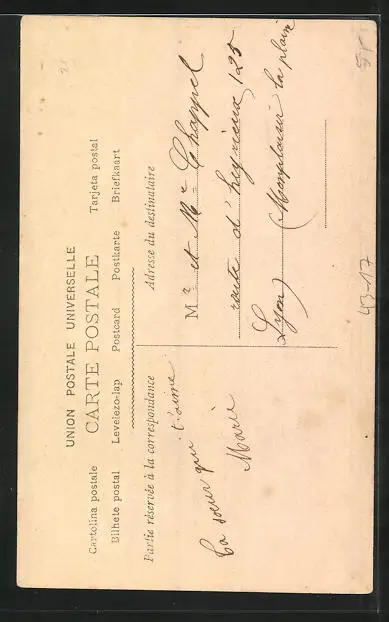 UNION POSTALE UNIVERSELLE
CARTE POSTALE
Cartolina postale Tarjeta postal
Bilhete postal Levelezo-lap Postcard Postkarte Briefkaart
Partie réservée à la correspondance
Adresse du destinataire
ta sœur qui t'aime
Marie
Mr et Me Chappel
route d'heyrieux 125
Lyon (Monplaisir la plaine
43-17